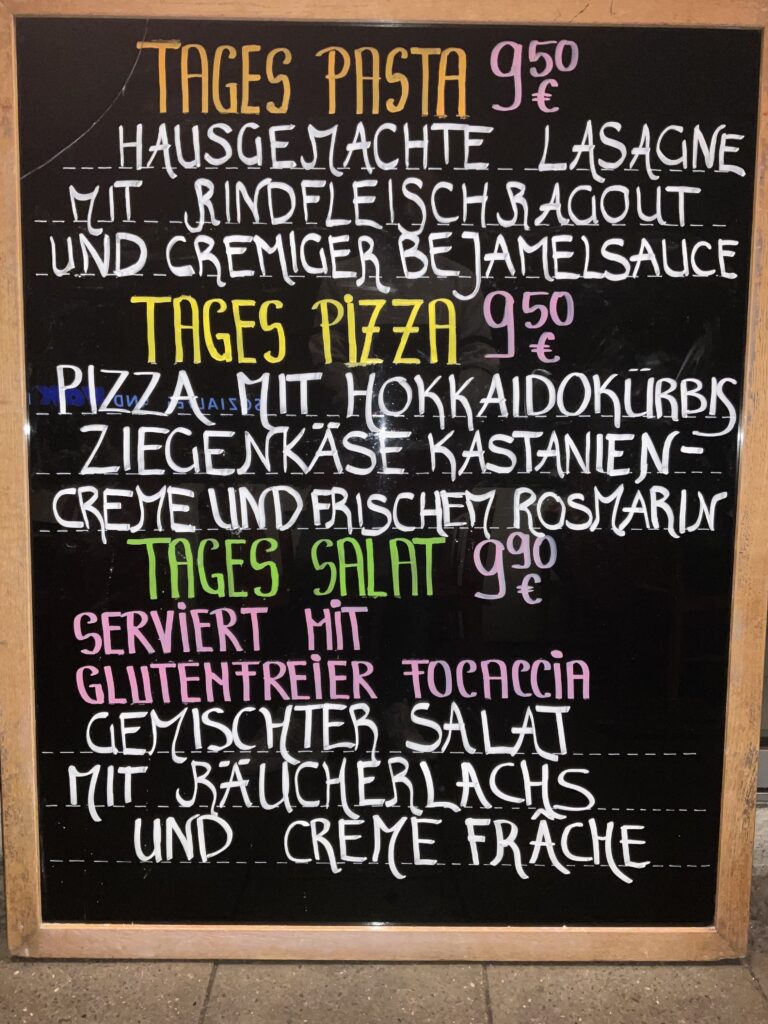 TAGES PASTA 9,50 €
HAUSGEMACHTE LASAGNE
MIT RINDFLEISCHRAGOUT
UND CREMIGER BEJAMELSAUCE
TAGES PIZZA 9,50 €
PIZZA MIT HOKKAIDOKÜRBIS
ZIEGENKÄSE KASTANIEN-
CREME UND FRISCHEM ROSMARIN
TAGES SALAT 9,90 €
SERVIERT MIT
GLUTENFREIER FOCACCIA
GEMISCHTER SALAT
MIT RÄUCHERLACHS
UND CREME FRÂCHE